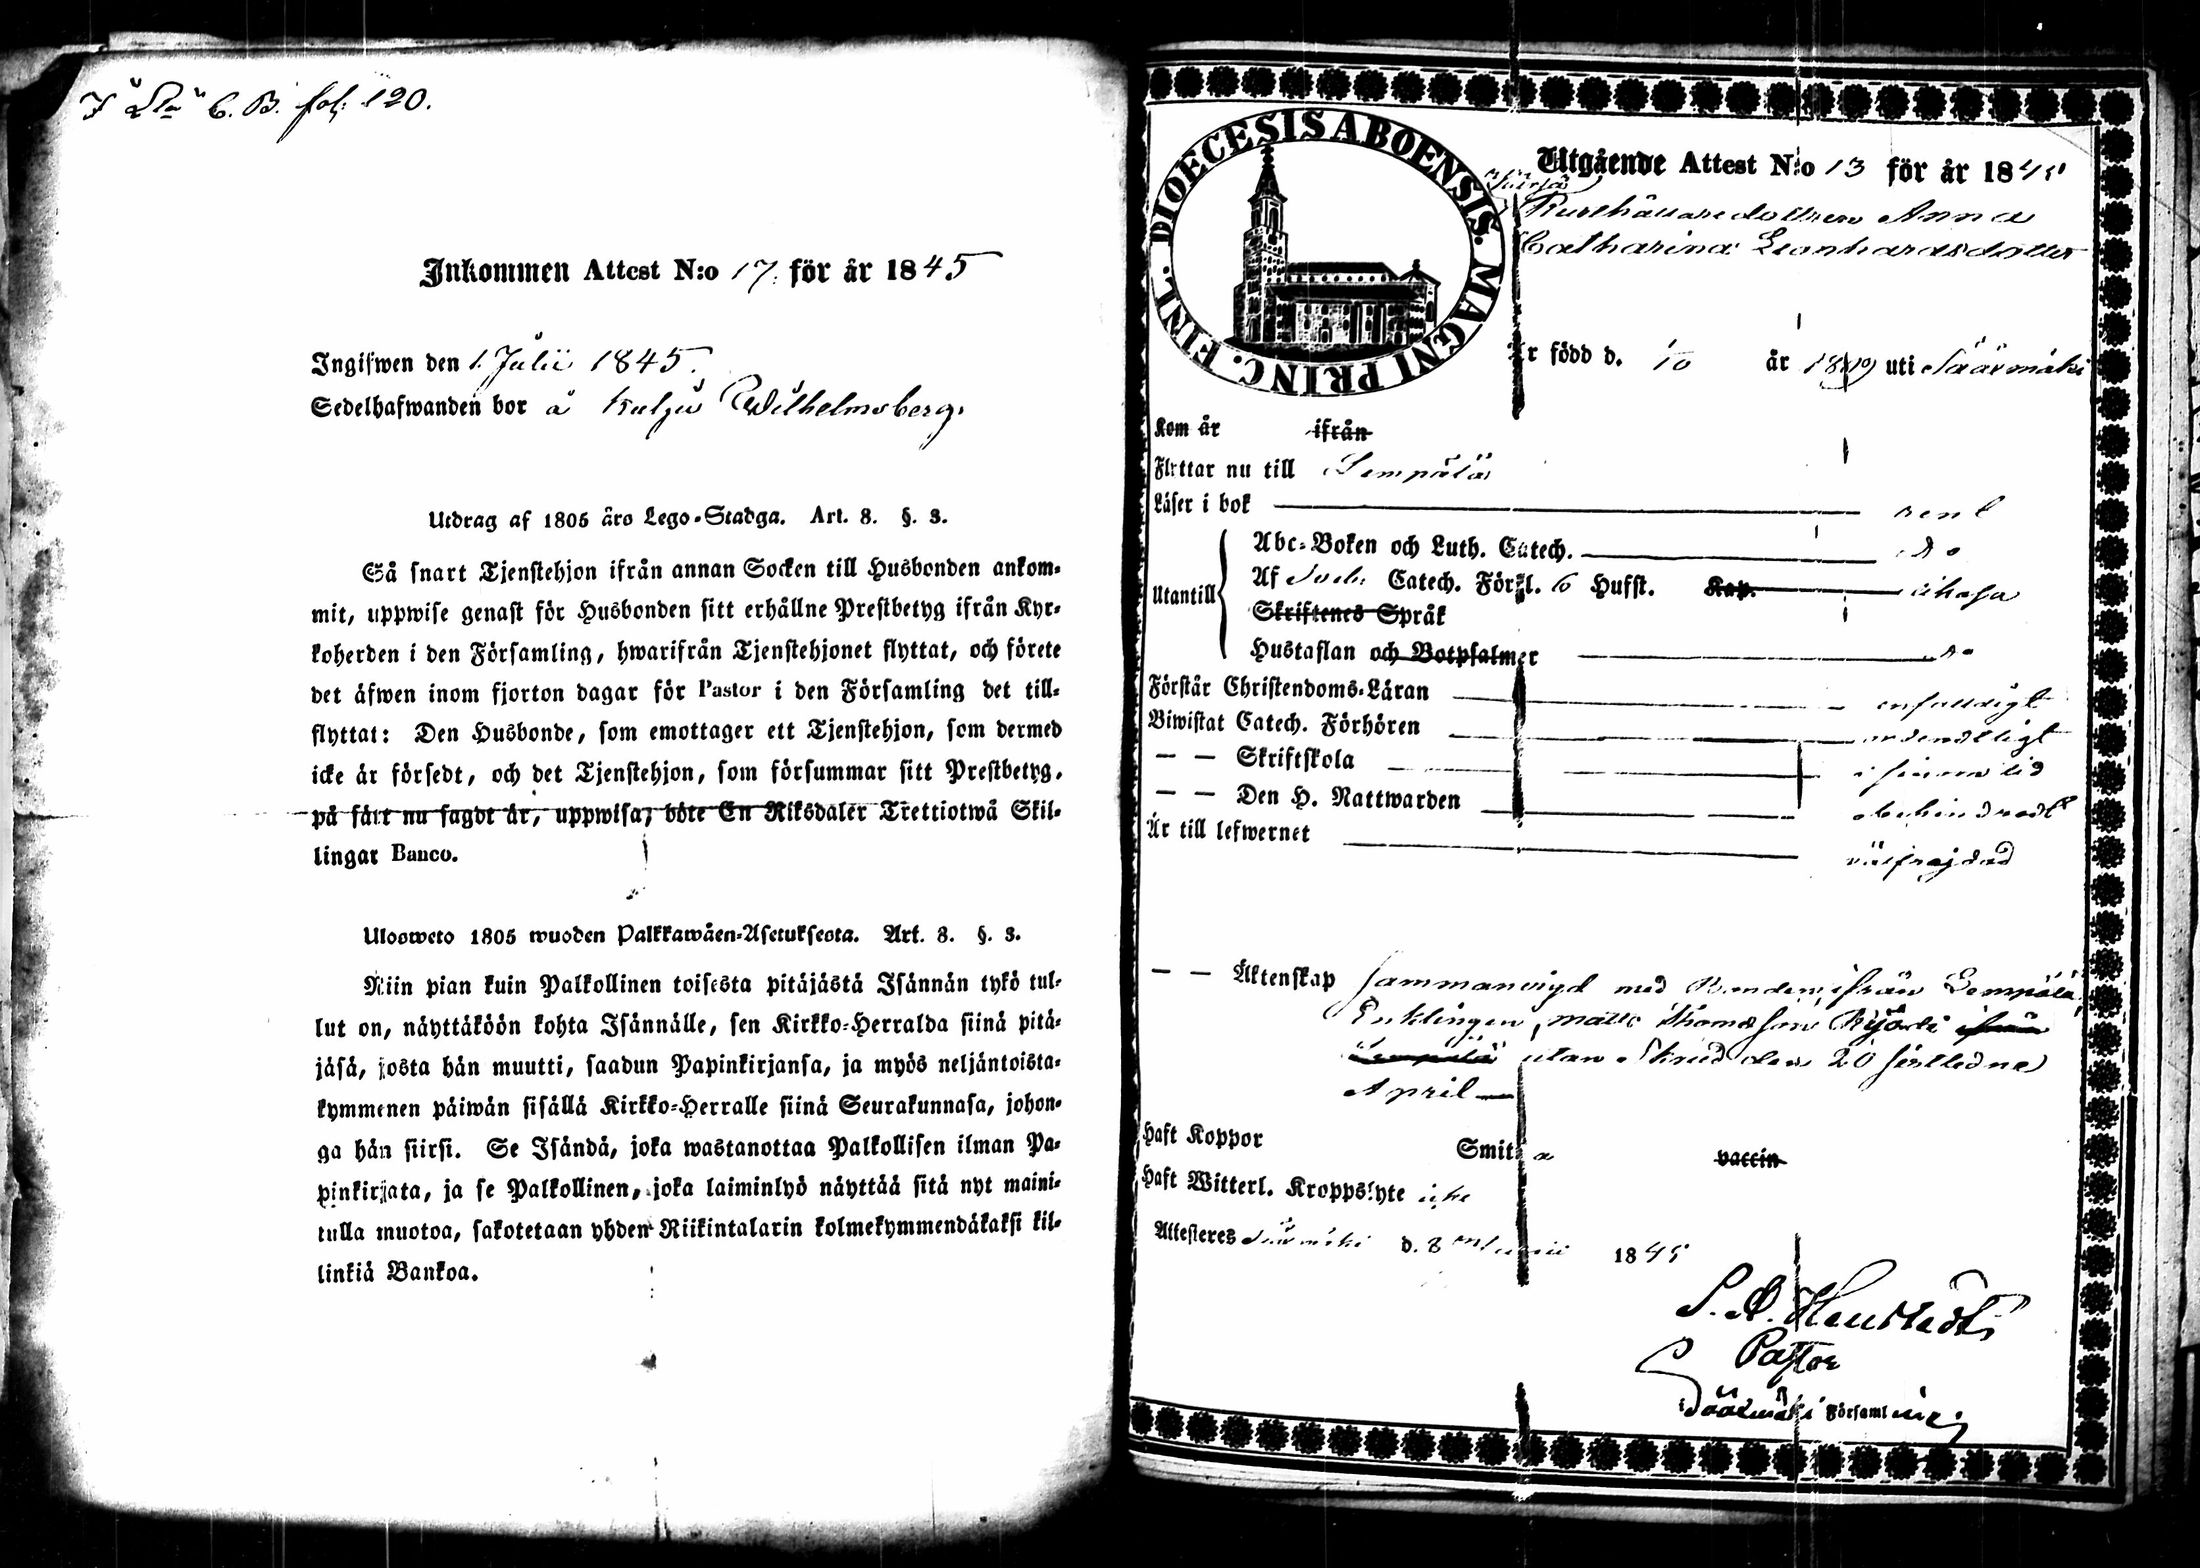 C. B. fol. 120.
Inkommen Attest N:o 17. för år 1845
Ingifwen den 1. Julii 1845.
Sedelhafwanden bor å Kulju Wilhelmsberg.
Utdrag af 1805 års Lego-Stadga. Art. 8. §. 3.
Så snart Tjenstehjon ifrån annan Socken till Husbonden ankom-
mit, uppwise genast för Husbonden sitt erhållne Prestbetyg ifrån Kyr-
koherden i den Församling, hwarifrån Tjenstehjonet flyttat, och förete
det äfwen inom fjorton dagar för Pastor i den Församling det till-
flyttat: Den Husbonde, som emottager ett Tjenstehjon, som dermed
icke är försedt, och det Tjenstehjon, som försummar sitt Prestbetyg,
på sätt nu sagdt är, uppwisa, böte En Riksdaler Trettiotwå Skil-
lingar Banco.
Ulosweto 1805 wuoden Palkkawäen-Asetuksesta. Art. 8. §. 3.
Niin pian kuin Palkollinen toisesta pitäjästä Isännän tykö tul-
lut on, näyttäköön kohta Isännälle, sen Kirkko-Herralda siinä pitä-
jäsä, josta hän muutti, saadun Papinkirjansa, ja myös neljäntoista-
kymmenen päiwän sisällä Kirkko-Herralle siinä Seurakunnasa, johon-
ga hän siirsi. Se Isändä, joka wastanottaa Palkollisen ilman Pa-
pinkirjata, ja se Palkollinen, joka laiminlyö näyttää sitä nyt maini-
tulla muotoa, sakotetaan yhden Riikintalarin kolmekymmendäkaksi kil-
linkiä Bankoa.
DIOECESIS ABOENSIS. MAGNI PRINC. FINL.
Utgående Attest N:o 13 för år 1845
Rusthållaredottren Anna
Catharina Leonhardsdotter
Är född d. 10 år 1809 uti Sääxmäki
Kom år ifrån
Flyttar nu till Lempälä
Läser i bok rent
Utantill
Abc-Boken och Luth. Catech. do
Af Sveb. Catech. Förkl. 6 Hufst. Kap. ihofa
Skriftenes Språk
Hustaflan och Botpsalmer do
Förstår Christendoms-Läran enfaldigt
Biwistat Catech. Förhören ordentligt
— — Skriftskola i sinom tid
— — Den H. Nattwarden obehindradt
Är till lefwernet välfrejdad
— — Äktenskap sammanvigd med Bonden, ifrån Lempälä,
Enklingen, Matts Thomasson ifrån
Lempälä utan Skrud den 20 sistledne
April
Haft Koppor Smitta vaccin
Haft Witterl. Kroppslyte icke
Attesteres Sääxmäki d. 8 Junii 1845
Pastor
i Sääxmäki Församling